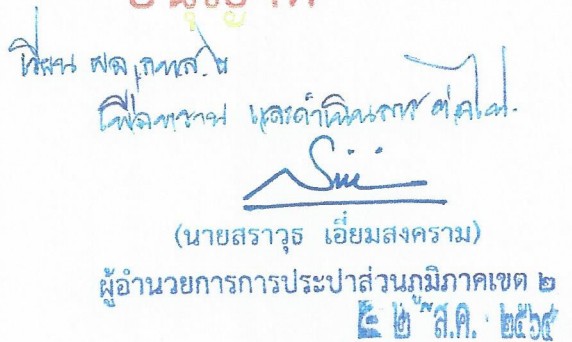 อนุญาต
เรียน ผอ.กทส.ข
เพื่อทราบ และดำเนินการ ต่อไป.
(นายสราวุธ เอี่ยมสงคราม)
ผู้อำนวยการการประปาส่วนภูมิภาคเขต ๒
๒ ส.ค. ๒๕๖๔